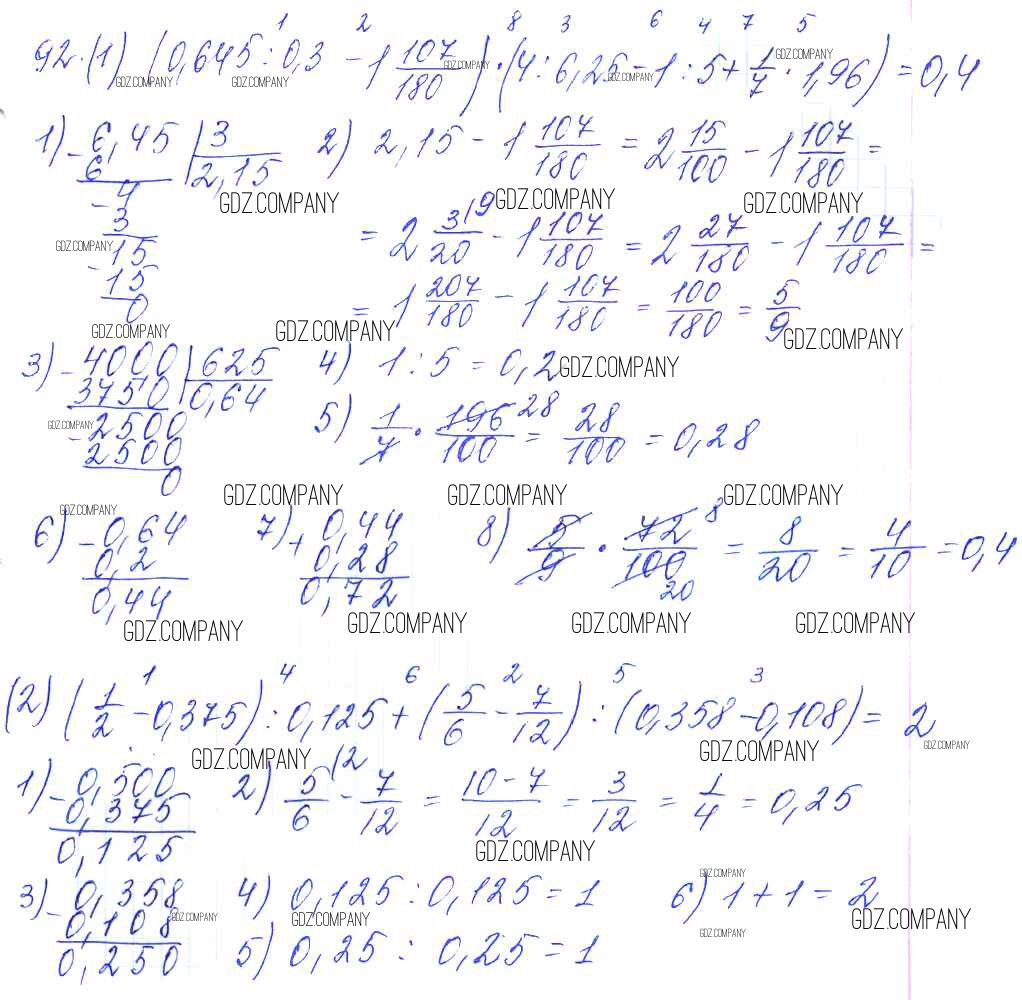 1 2 8 3 6 4 7 5
92.(1) (0,645 : 0,3 - 1 107/180) · (4 : 6,25 - 1 : 5 + 1/7 · 1,96) = 0,4
GDZ.COMPANY GDZ.COMPANY GDZ.COMPANY GDZ.COMPANY GDZ.COMPANY
1) - 6,45 | 3 2) 2,15 - 1 107/180 = 2 15/100 - 1 107/180 =
6 2,15
- 4 GDZ.COMPANY GDZ.COMPANY GDZ.COMPANY
3 = 2 3/20 (9 - 1 107/180 = 2 27/180 - 1 107/180 =
GDZ.COMPANY - 15
15 = 1 207/180 - 1 107/180 = 100/180 = 5/9
0
GDZ.COMPANY GDZ.COMPANY GDZ.COMPANY
3) - 4000 | 625 4) 1 : 5 = 0,2 GDZ.COMPANY
3750 0,64
GDZ.COMPANY - 2500 5) 1/7 · 196/100 28 = 28/100 = 0,28
2500
0
GDZ.COMPANY GDZ.COMPANY GDZ.COMPANY GDZ.COMPANY
6) - 0,64 7) + 0,44 8) 5/9 · 72/100 8 20 = 8/20 = 4/10 = 0,4
0,2 0,28
0,44 0,72
GDZ.COMPANY GDZ.COMPANY GDZ.COMPANY GDZ.COMPANY
1 4 6 2 5 3
(2) (1/2 - 0,375) : 0,125 + (5/6 - 7/12) : (0,358 - 0,108) = 2
GDZ.COMPANY GDZ.COMPANY GDZ.COMPANY
1) - 0,500 2) 5/6 (2 - 7/12 = 10-7/12 = 3/12 = 1/4 = 0,25
0,375
0,125
GDZ.COMPANY GDZ.COMPANY
3) - 0,358 4) 0,125 : 0,125 = 1 6) 1 + 1 = 2
0,108 GDZ.COMPANY GDZ.COMPANY GDZ.COMPANY GDZ.COMPANY
0,250 5) 0,25 : 0,25 = 1